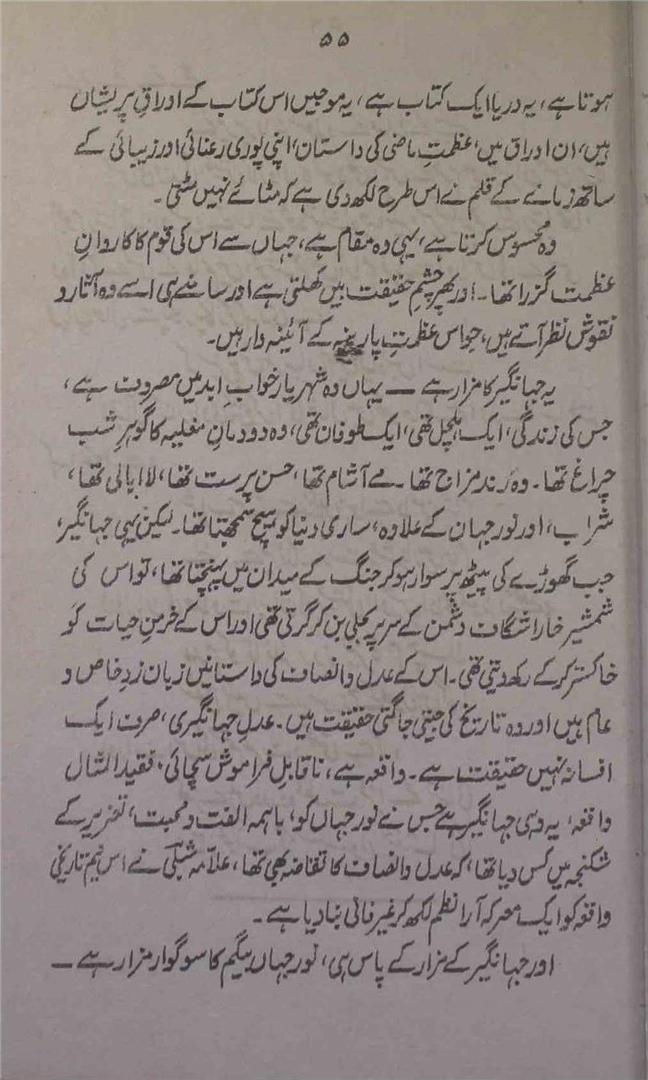 ۵۵
ہوتا ہے، یہ دریا ایک کتاب ہے، یہ موجیں اس کتاب کے اوراقِ پریشاں
ہیں، ان اوراق میں، عظمتِ ماضی کی داستان، اپنی پوری رعنائی اور زیبائی کے
ساتھ زمانے کے قلم نے اس طرح لکھ دی ہے کہ مٹائے نہیں مٹتی۔
وہ محسوس کرتا ہے، یہی وہ مقام ہے، جہاں سے اس کی قوم کا کاروانِ
عظمت گزرا تھا۔ اور پھر چشمِ حقیقت بیں کھلتی ہے اور سامنے ہی اسے وہ آثار و
نقوش نظر آتے ہیں، جو اس عظمتِ پارینہ کے آئینہ دار ہیں۔
یہ جہانگیر کا مزار ہے — یہاں وہ شہریار خوابِ ابد میں مصروف ہے،
جس کی زندگی، ایک ہلچل تھی، ایک طوفان تھی، وہ دودمانِ مغلیہ کا گوہرِ شب
چراغ تھا۔ وہ رند مزاج تھا۔ مے آشام تھا، حسن پرست تھا، لاابالی تھا،
شراب، اور نور جہان کے علاوہ، ساری دنیا کو ہیچ سمجھتا تھا۔ لیکن یہی جہانگیر،
جب گھوڑے کی پیٹھ پر سوار ہو کر جنگ کے میدان میں پہنچتا تھا، تو اس کی
شمشیرِ خارا شگاف دشمن کے سر پر بجلی بن کر گرتی تھی اور اس کے خرمنِ حیات کو
خاکستر کر کے رکھ دیتی تھی۔ اس کے عدل و انصاف کی داستانیں زبان زدِ خاص و
عام ہیں اور وہ تاریخ کی جیتی جاگتی حقیقت ہیں۔ عدلِ جہانگیری، صرف ایک
افسانہ نہیں حقیقت ہے۔ واقعہ ہے، ناقابلِ فراموش سچائی، فقید المثال
واقعہ، یہ وہی جہانگیر ہے جس نے نور جہاں کو، باہمہ الفت و محبت، تعزیر کے
شکنجہ میں کس دیا تھا، کہ عدل و انصاف کا تقاضہ یہی تھا، علامہ شبلیؔ نے اس نیم تاریخی
واقعہ کو ایک معرکہ آرا نظم لکھ کر غیر فانی بنا دیا ہے۔
اور جہانگیر کے مزار کے پاس ہی، نور جہاں بیگم کا سوگوار مزار ہے —